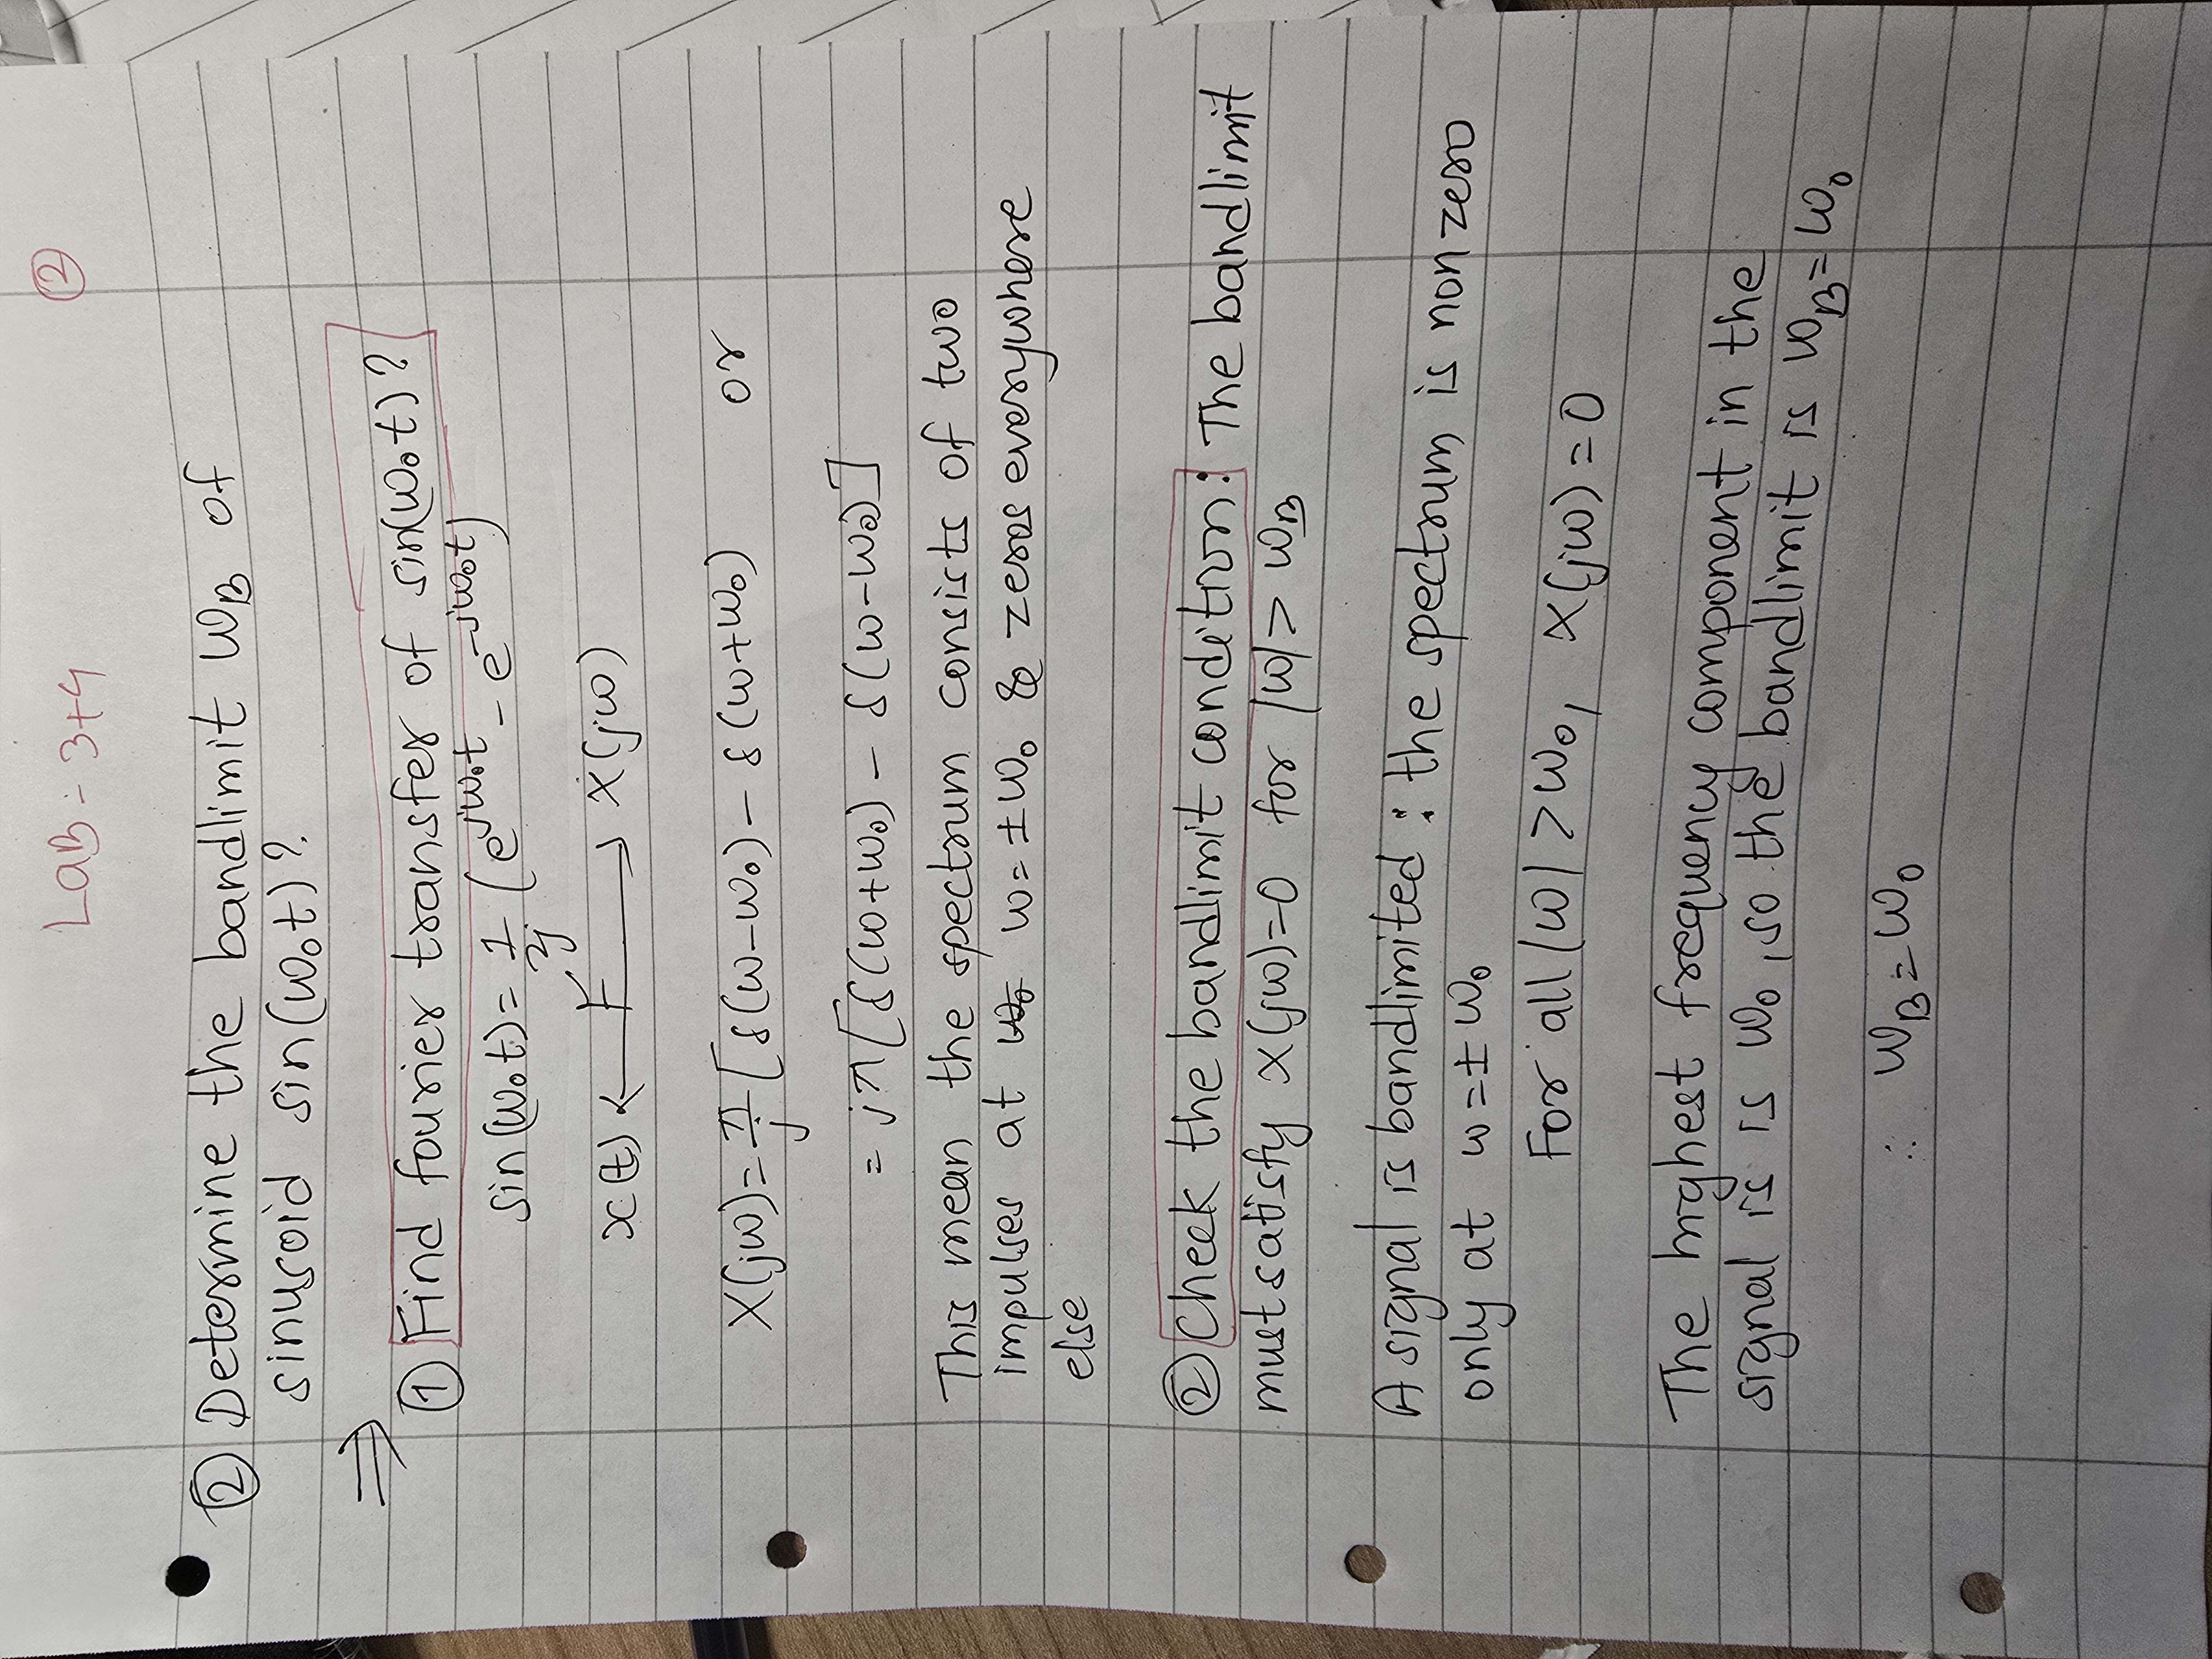 LAB - 3+4
②
② Determine the bandlimit ω_B of
sinusoid sin(ω₀t)?
⇒
① Find fourier transfer of sin(ω₀t)?
sin(ω₀t) = 1/2j (e^jω₀t - e^-jω₀t)
x(t) ←F→ X(jω)
X(jω) = π/j [δ(ω-ω₀) - δ(ω+ω₀) or
= jπ[δ(ω+ω₀) - δ(ω-ω₀)]
This mean the spectrum consists of two
impulses at ω=±ω₀ & zeros everywhere
else
② Check the bandlimit condition: The bandlimit
must satisfy X(jω)=0 for |ω| > ω_B
A signal is bandlimited : the spectrum is nonzero
only at ω=±ω₀
For all |ω| > ω₀, X(jω) = 0
The highest frequency component in the
signal is is ω₀, so the bandlimit is ω_B=ω₀
∴ ω_B = ω₀